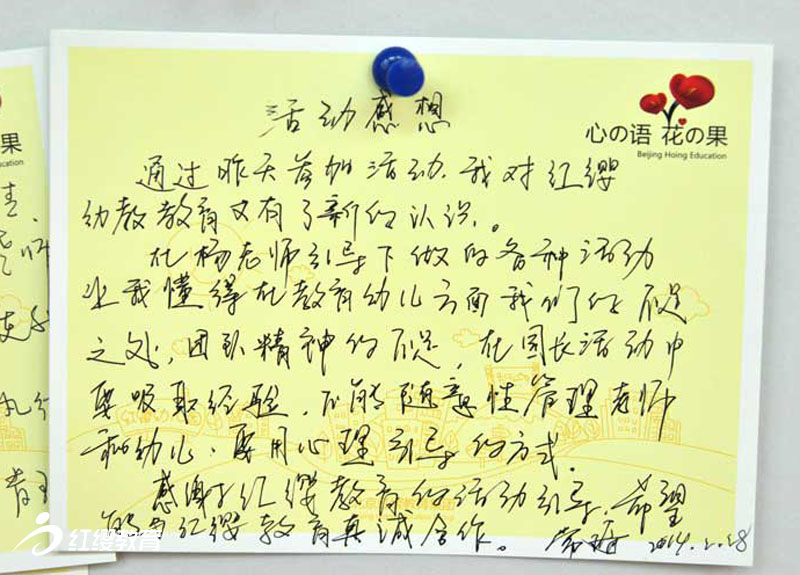 活动感想
心の语 花の果
Beijing Hoing Education
通过昨天参加活动,我对红缨
幼教教育又有了新的认识。
在杨老师引导下做的各种活动
让我懂得在教育幼儿方面我们的不足
之处,团队精神的不足,在园长活动中
要吸取经验,不能随意性管理老师
和幼儿,要用心理引导的方式.
感谢红缨教育的活动引导,希望
能与红缨教育真诚合作。
2014.2.28
果
Education
红缨教育